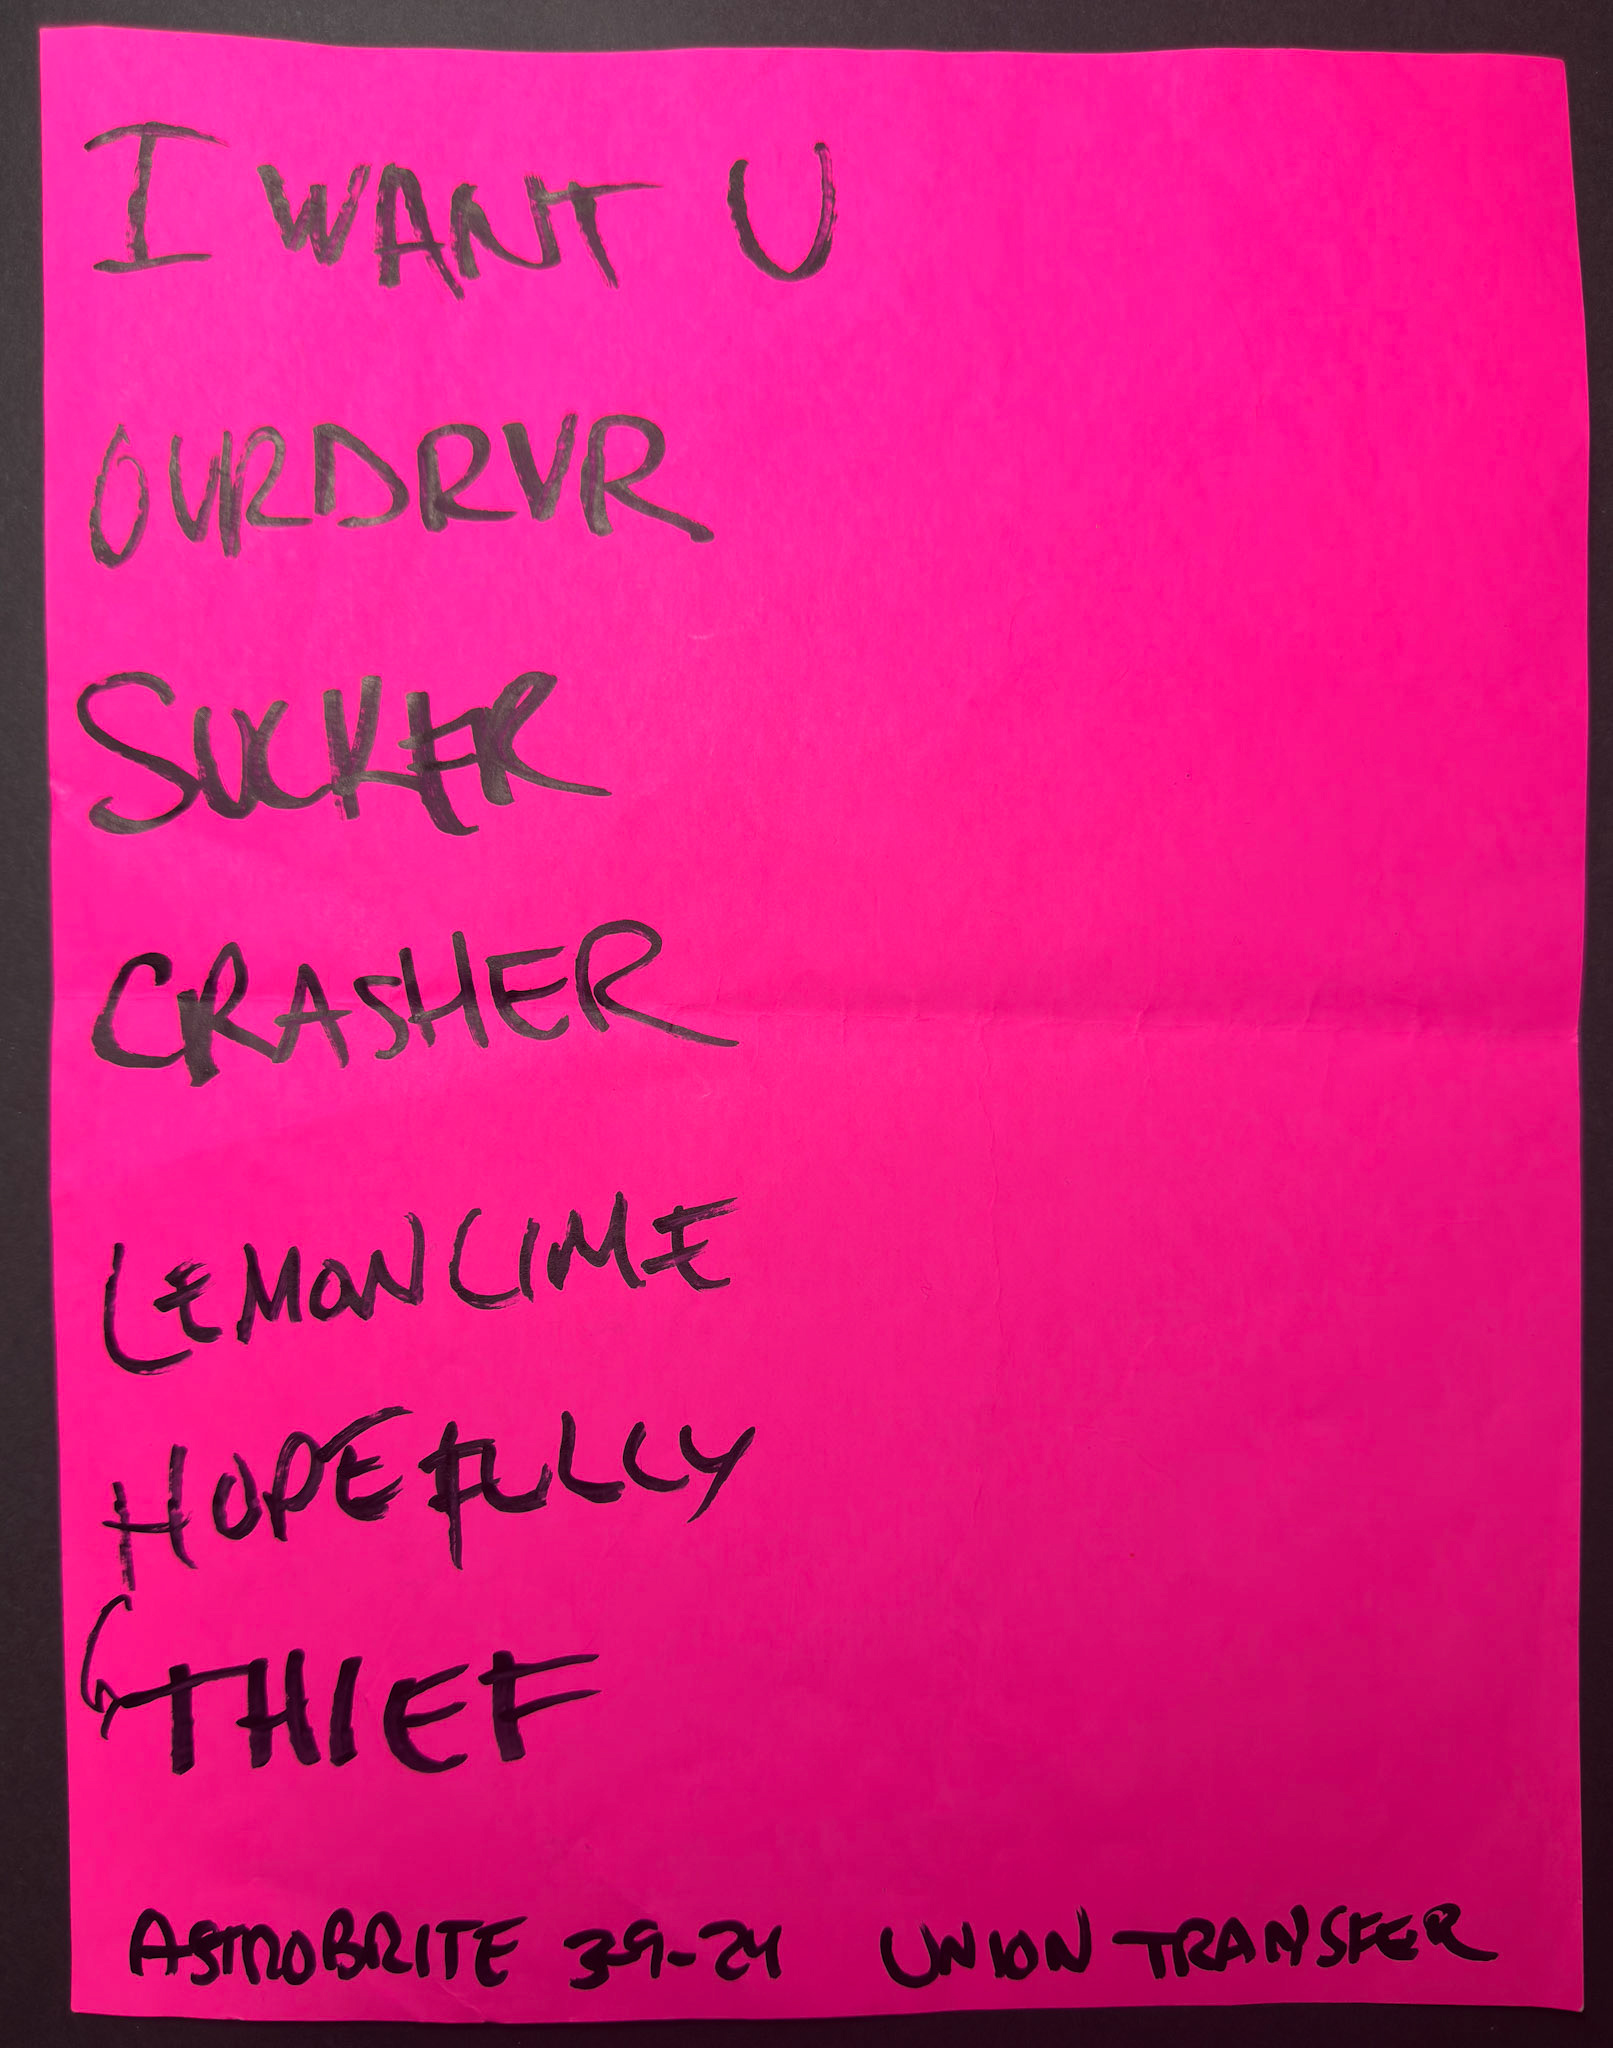 I WANT U
OVRDRVR
SUCKER
CRASHER
LEMONLIME
HOPEFULLY
THIEF
ASTROBRITE 39-24 UNION TRANSFER